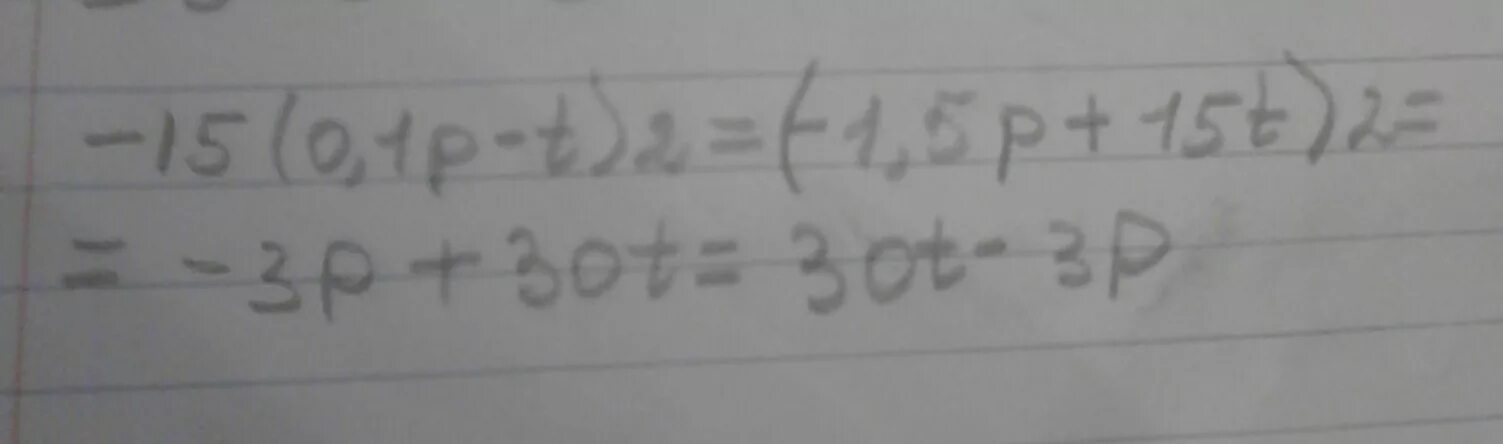 -15(0,1p-t)2=(-1,5p+15t)2=
=-3p+30t=30t-3p